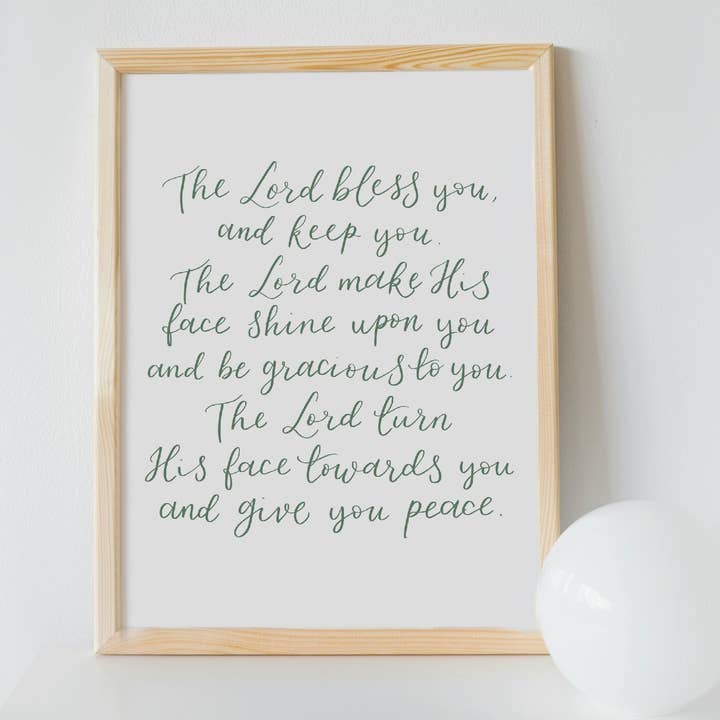 The Lord bless you,
and keep you.
The Lord make His
face shine upon you
and be gracious to you.
The Lord turn
His face towards you
and give you peace.